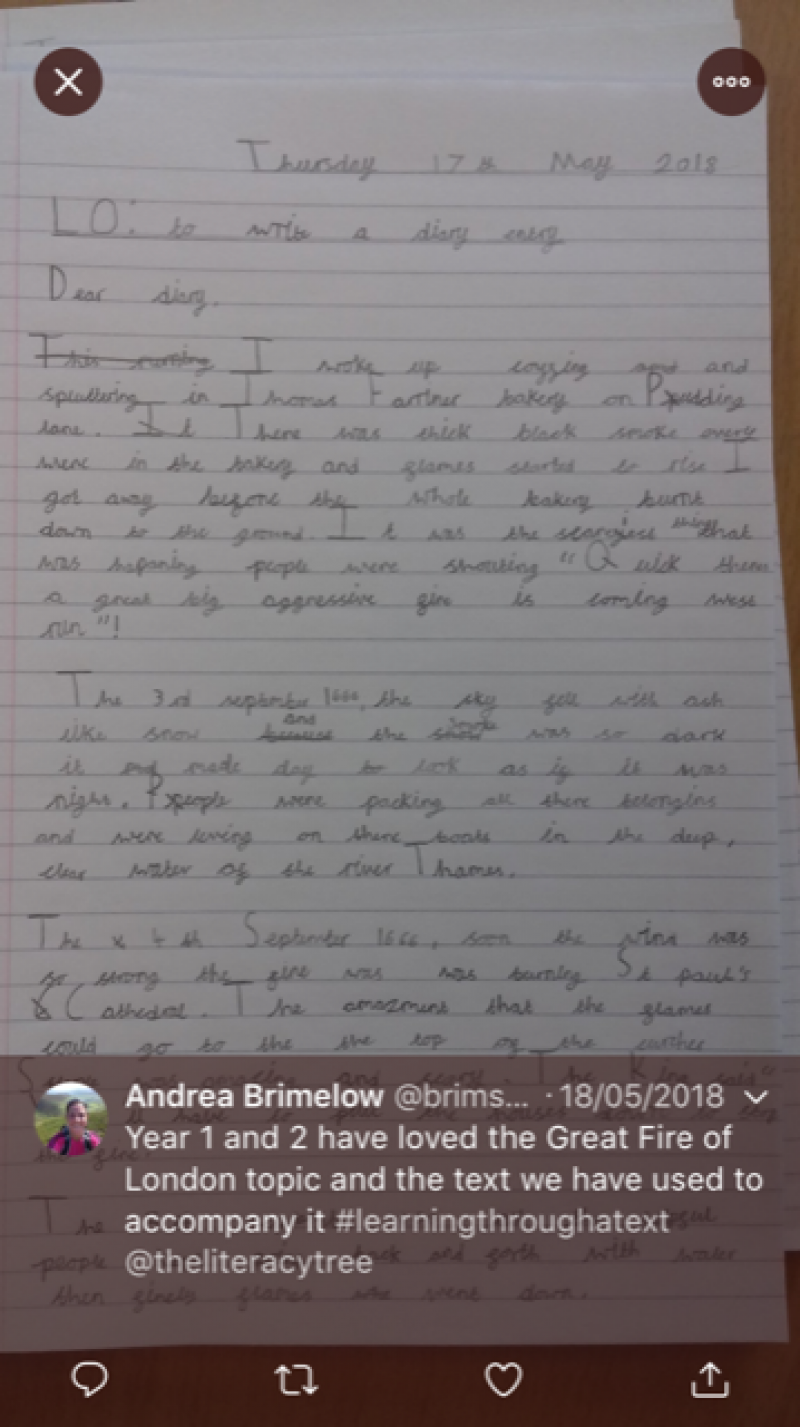 Thursday 17th May 2018
LO: to write a diary entry
Dear diary,
This morning I woke up and and
spluttering in Thomas Farriner bakery on Pudding
lane. It There was thick black smoke every
were in the bakery and flames started to rise I
got away before the whole bakery burnt
down to the ground. It was the thing that
was hapening people were shouting "Quick there
a great big aggressive fire is coming west
run"!
The 3rd september 1666, the sky fell with ash
like snow because and the snow smoke was so dark
it made day to look as if it was
night. People were packing all there belongins
and were leving on there boats in the deep,
clear water of the river Thames.
The 4th September 1666, soon the wind was
so strong the fire was was burning St paul's
Cathedral. The amazment that the flames
could go to the the top of the
was and scary. The King said"
have to pull the houses down to stop
the fire.
The
people back and forth with water
then finely flames went down.
Andrea Brimelow @brims... · 18/05/2018
Year 1 and 2 have loved the Great Fire of
London topic and the text we have used to
accompany it #learningthroughatext
@theliteracytree